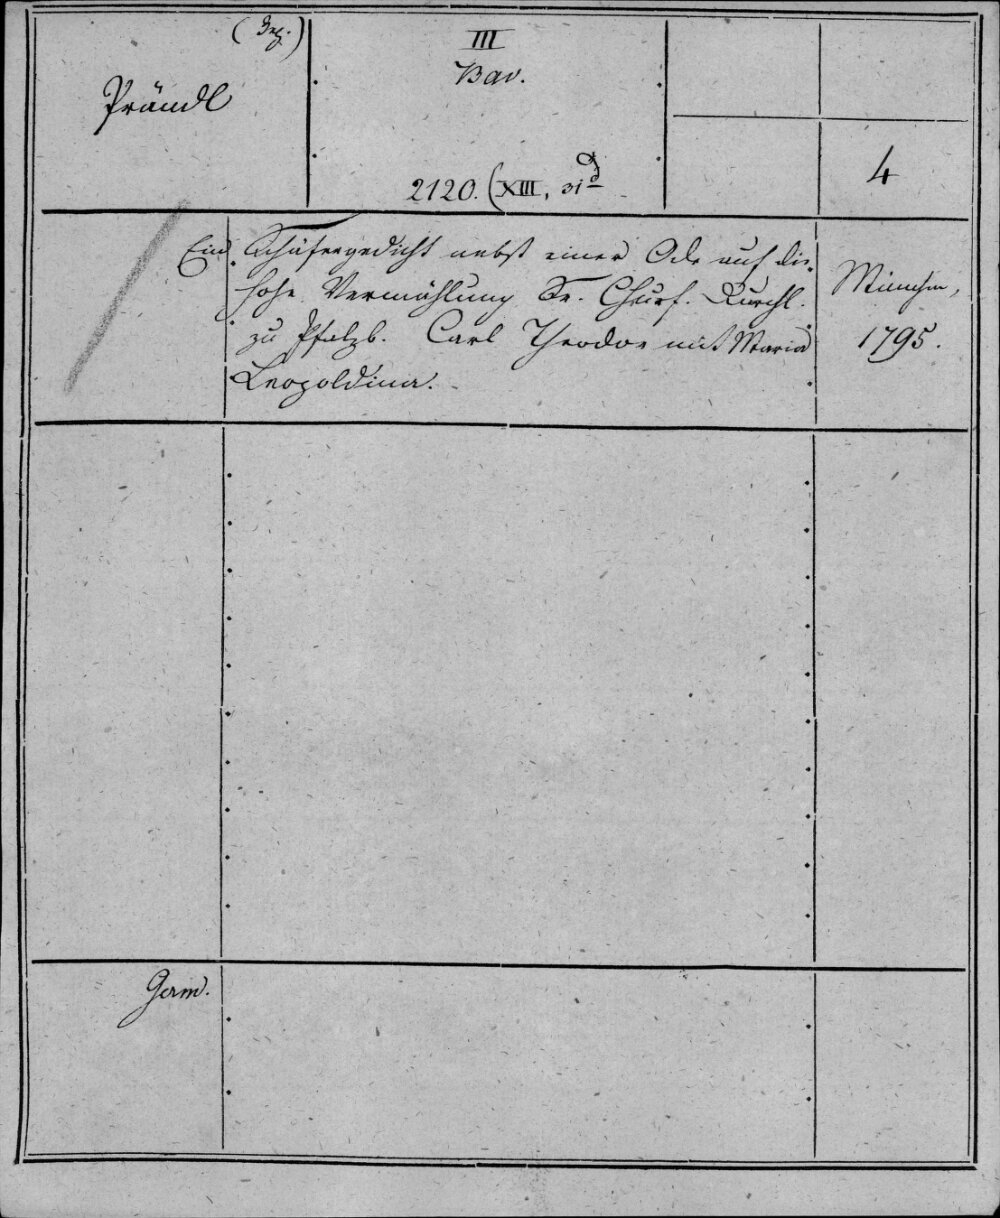 (Jos.)
Prändl
III
Bav.
2120. (XIII, 31 d)
4
Ein Schäfergedicht nebst einer Ode auf die
hohe Vermählung Sr. Churf. Durchl.
zu Pfalzb. Carl Theodor mit Maria
Leopoldina.
München,
1795.
Germ.